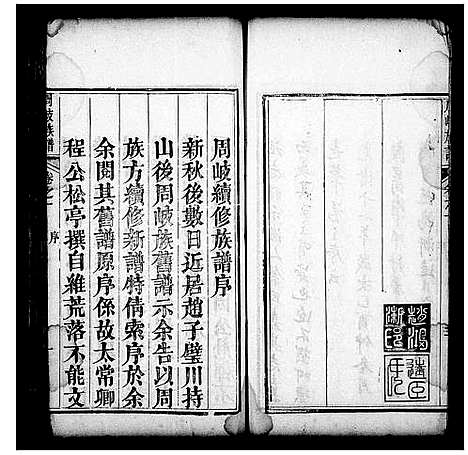 周岐續修族譜序
新秋後數日近居趙子璧川持
山後周岐族舊譜示余告以周
族方續修新譜特倩索序於余
余閱其舊譜原序係故太常卿
程公松亭撰自維荒落不能文
周岐族譜
卷之一
序
一